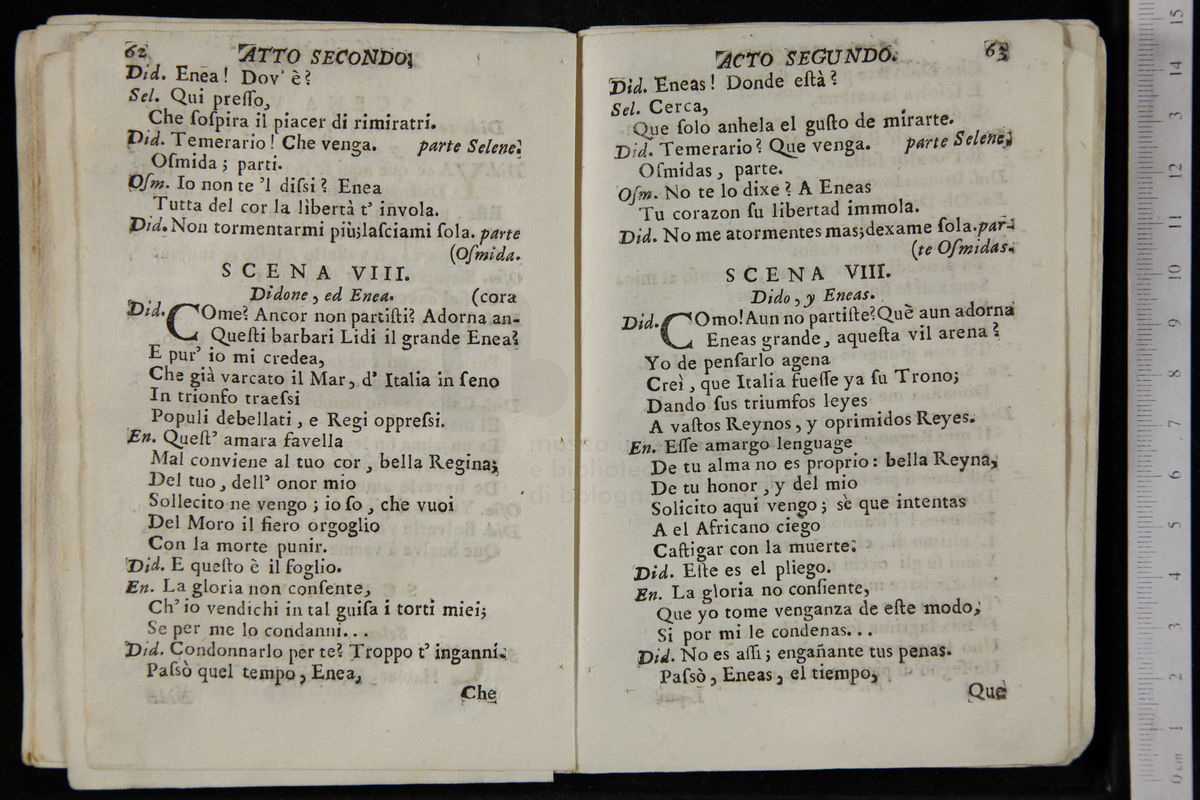 62 ATTO SECONDO;
Did. Enea! Dov' è?
Sel. Qui preſſo,
Che ſoſpira il piacer di rimiratri.
Did. Temerario! Che venga. parte Selene.
Oſmida; parti.
Oſm. Io non te 'l diſsi? Enea
Tutta del cor la libertà t' invola.
Did. Non tormentarmi più; laſciami ſola. parte
(Oſmida.
SCENA VIII.
Didone, ed Enea. (cora
Did. COme? Ancor non partiſti? Adorna an-
Queſti barbari Lidi il grande Enea?
E pur' io mi credea,
Che già varcato il Mar, d' Italia in ſeno
In trionfo traeſsi
Populi debellati, e Regi oppreſsi.
En. Queſt' amara favella
Mal conviene al tuo cor, bella Regina;
Del tuo, dell' onor mio
Sollecito ne vengo; io ſo, che vuoi
Del Moro il fiero orgoglio
Con la morte punir.
Did. E queſto è il foglio.
En. La gloria non conſente,
Ch' io vendichi in tal guiſa i torti miei;
Se per me lo condanni...
Did. Condonnarlo per te? Troppo t' inganni.
Paſsò quel tempo, Enea,
Che
ACTO SEGUNDO. 63
Did. Eneas! Donde eſtà?
Sel. Cerca,
Que ſolo anhela el guſto de mirarte.
Did. Temerario? Que venga. parte Selene.
Oſmidas, parte.
Oſm. No te lo dixe? A Eneas
Tu corazon ſu libertad immola.
Did. No me atormentes mas; dexame ſola. par-
(te Oſmidas.
SCENA VIII.
Dido, y Eneas.
Did. COmo! Aun no partiſte? Què aun adorna
Eneas grande, aqueſta vil arena?
Yo de penſarlo agena
Creì, que Italia fueſſe ya ſu Trono;
Dando ſus triumfos leyes
A vaſtos Reynos, y oprimidos Reyes.
En. Eſſe amargo lenguage
De tu alma no es proprio: bella Reyna,
De tu honor, y del mio
Solicito aqui vengo; sè que intentas
A el Africano ciego
Caſtigar con la muerte.
Did. Eſte es el pliego.
En. La gloria no conſiente,
Que yo tome venganza de eſte modo,
Si por mi le condenas...
Did. No es aſſi; engañante tus penas.
Paſsò, Eneas, el tiempo,
Que